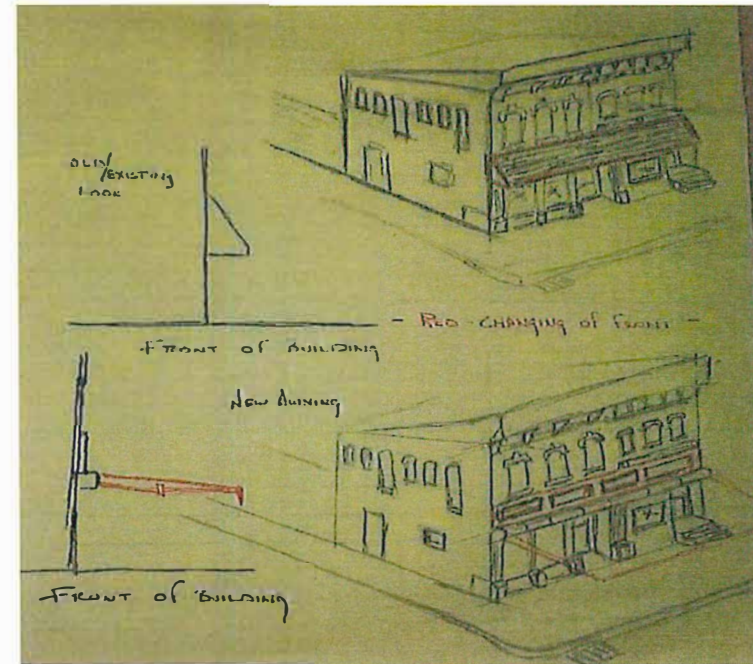 OLD/
EXISTING
LOOK
FRONT OF BUILDING
- RED - CHANGING OF FRONT -
NEW AWNING
FRONT OF BUILDING